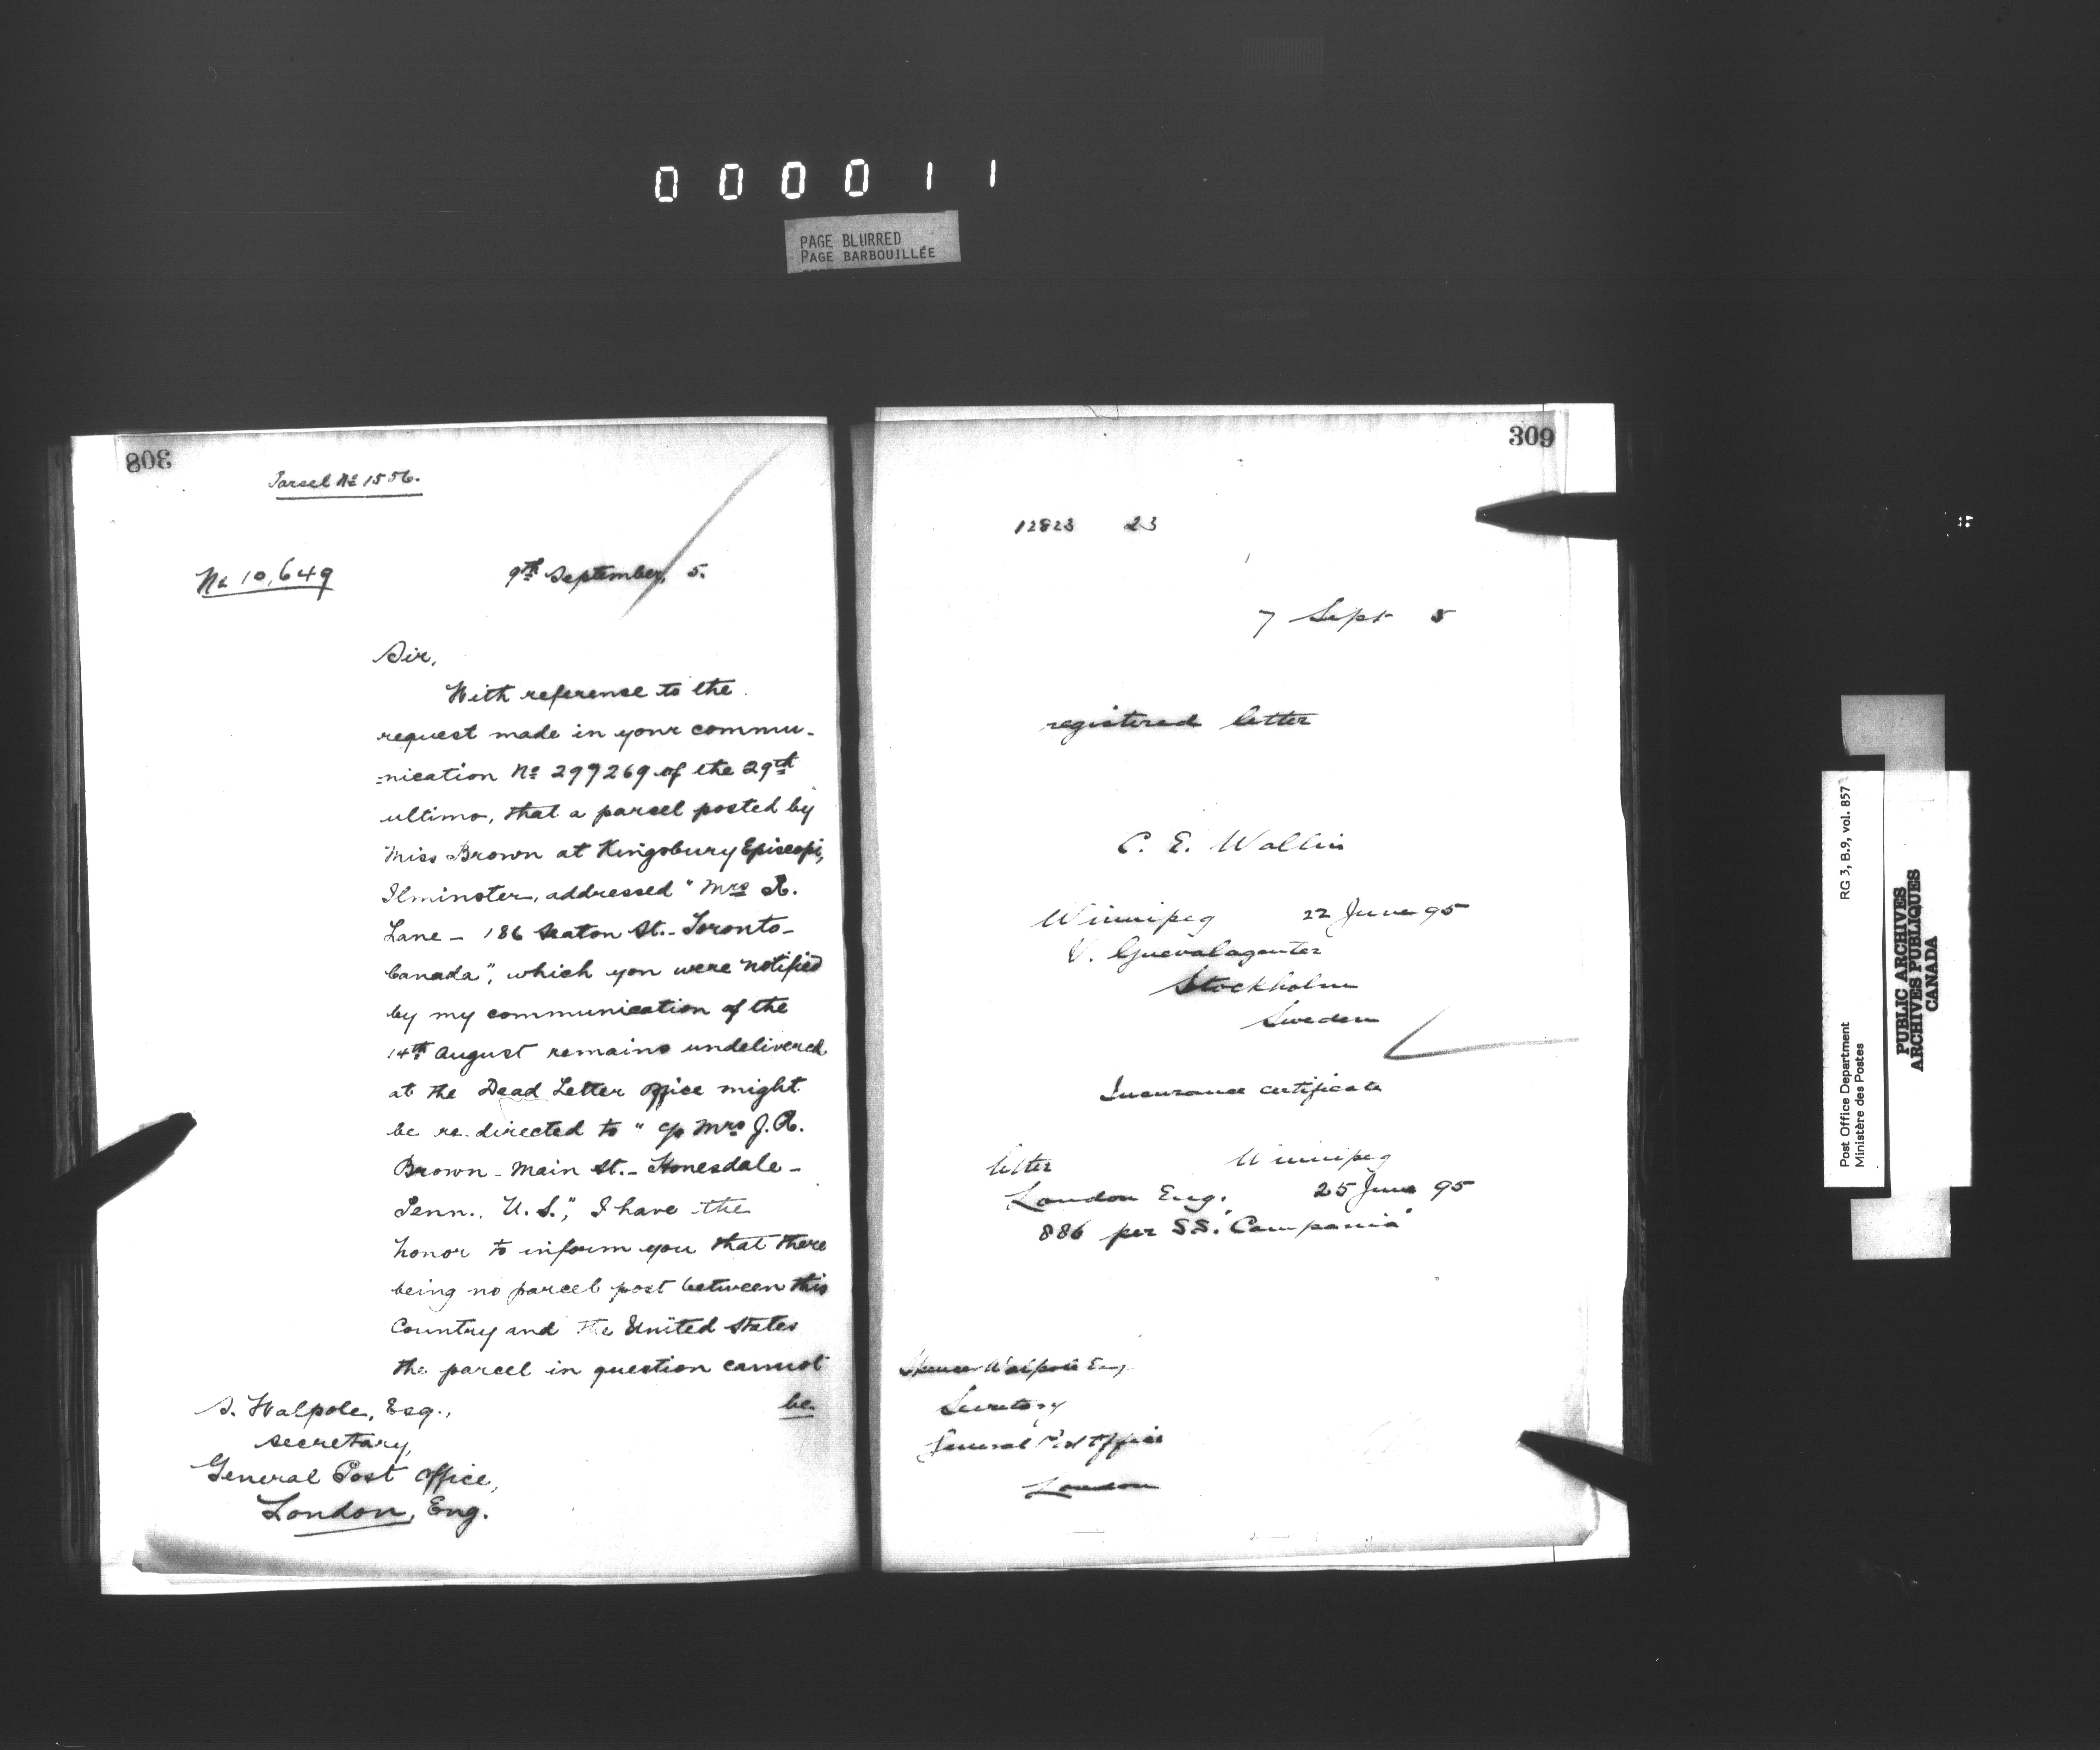 000011
PAGE BLURRED
PAGE BARBOUILLÉE
308
Parcel No 1556.
No 10,649
9th September, 5.
Sir,
With reference to the
request made in your commu-
-nication No 299269 of the 29th
ultimo, that a parcel posted by
Miss Brown at Kingsbury Episcopi,
Ilminster, addressed "Mrs R.
Lane - 186 Seaton St. - Toronto -
Canada", which you were notified
by my communication of the
14th August remains undelivered
at the Dead Letter Office might
be re-directed to "c/o Mrs J. R.
Brown - Main St. - Honesdale -
Penn., U.S.", I have the
honor to inform you that there
being no parcel post between this
Country and the United States
the parcel in question cannot
be
S. Walpole, Esq.,
Secretary,
General Post Office,
London, Eng.
309
12823 23
7 Sept 5
registered letter
C. E. Wallin
Winnipeg 22 June 95
Stockholm
Sweden
Insurance certificate
letter Winnipeg
London Eng. 25 June 95
886 per S.S. "Campania"
Spencer Walpole Esq
Secretary
General Post Office
London
Post Office Department RG 3, B.9, vol. 857
Ministère des Postes
PUBLIC ARCHIVES
ARCHIVES PUBLIQUES
CANADA